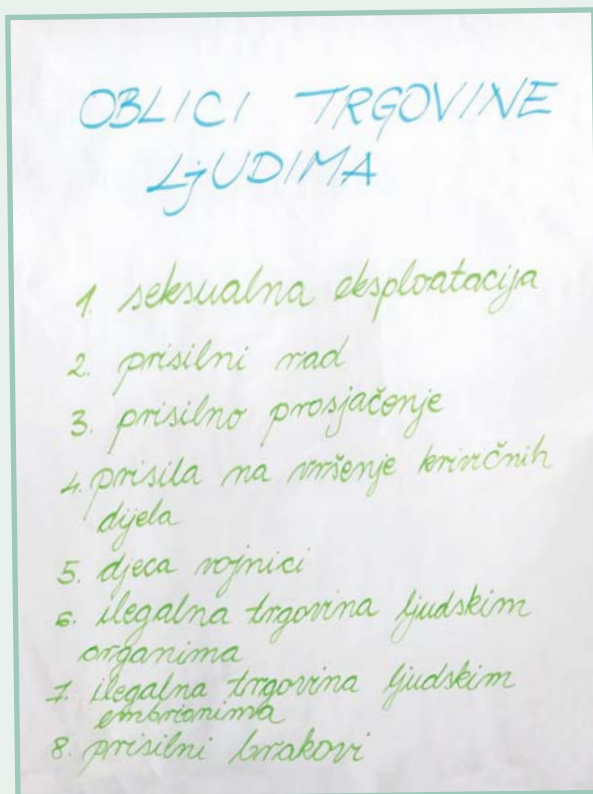 OBLICI TRGOVINE
LjUDIMA
1. seksualna eksploatacija
2. prisilni rad
3. prisilno prosjačenje
4. prisila na vršenje krivičnih
dijela
5. djeca vojnici
6. ilegalna trgovina ljudskim
organima
7. ilegalna trgovina ljudskim
embrionima
8. prisilni brakovi